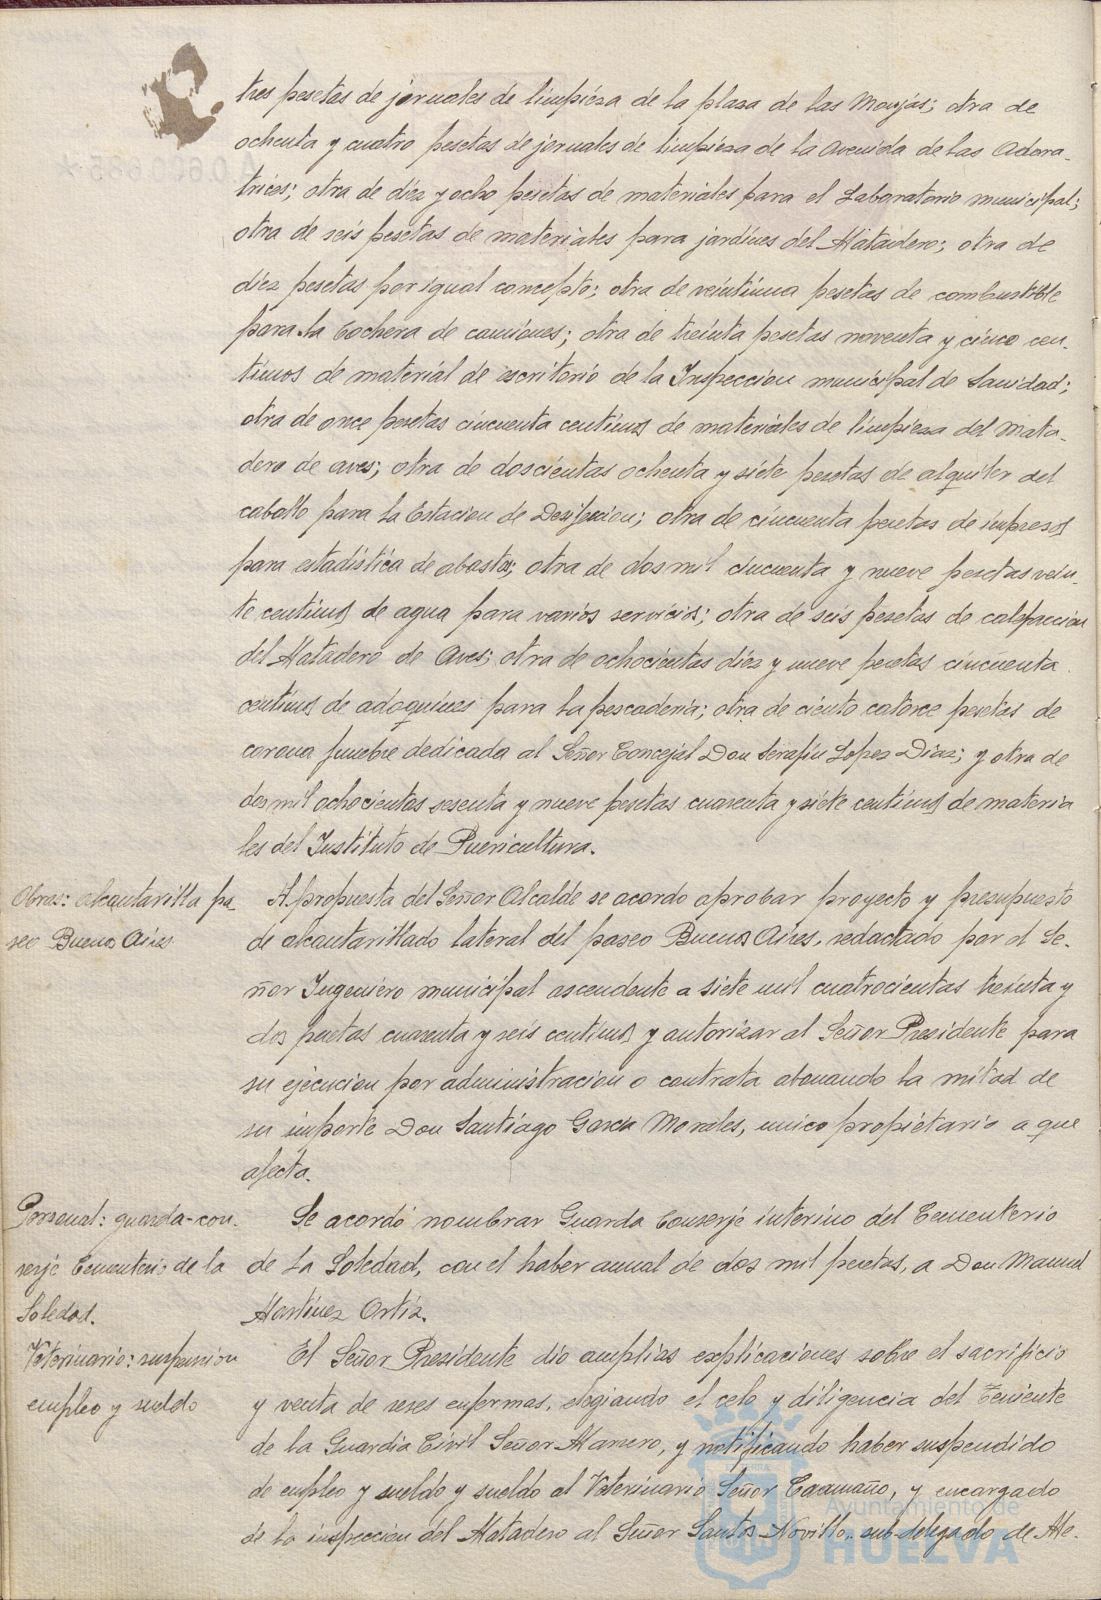 tres pesetas de jornales de limpieza de la plaza de las Monjas; otra de
ochenta y cuatro pesetas de jornales de limpieza de la Avenida de las Adora-
trices; otra de diez y ocho pesetas de materiales para el Laboratorio municipal;
otra de seis pesetas de materiales para jardines del Matadero; otra de
diez pesetas por igual concepto; otra de veintiuna pesetas de combustible
para la Cochera de camiones; otra de treinta pesetas noventa y cinco cen-
timos de material de escritorio de la Inspeccion municipal de Sanidad;
otra de once pesetas cincuenta centimos de materiales de limpieza del Mata-
dero de aves; otra de doscientas ochenta y siete pesetas de alquiler del
caballo para la Estacion de Desifeccion; otra de cincuenta pesetas de impresos
para estadistica de abastos; otra de dos mil cincuenta y nueve pesetas vein-
te centimos de agua para varios servicios; otra de seis pesetas de calefaccion
del Matadero de Aves; otra de ochocientas diez y nueve pesetas cincuenta
centimos de adoquines para la pescaderia; otra de ciento catorce pesetas de
corona funebre dedicada al Señor Concejal Don Serafin Lopez Diaz; y otra de
dos mil ochocientas sesenta y nueve pesetas cuarenta y siete centimos de materia
les del Instituto de Puericultura.
Obras: alcantarilla pa-
seo Buenos Aires
A propuesta del Señor Alcalde se acordo aprobar proyecto y presupuesto
de alcantarillado lateral del paseo Buenos Aires, redactado por el Se-
ñor Ingeniero municipal ascendente a siete mil cuatrocientas treinta y
dos pesetas cuarenta y seis centimos y autorizar al Señor Presidente para
su ejecucion por administracion o contrata abonando la mitad de
su importe Don Santiago Garcia Morales, unico propietario a que
afecta.
Personal: guarda-con-
serje Cementerio de la
Soledad.
Se acordó nombrar Guarda Conserje interino del Cementerio
de la Soledad, con el haber anual de dos mil pesetas, a Don Manuel
Martinez Ortiz.
Veterinario: suspension
empleo y sueldo
El Señor Presidente dio amplias explicaciones sobre el sacrificio
y venta de reses enfermas, elogiando el celo y diligencia del Teniente
de la Guardia Civil Señor Manero, y notificando haber suspendido
de empleo y sueldo y sueldo al Veterinario Señor Caamaño, y encargado
de la inspeccion del Matadero al Señor Santos Novillo, sub-delegado de Me-
Ayuntamiento de
HUELVA